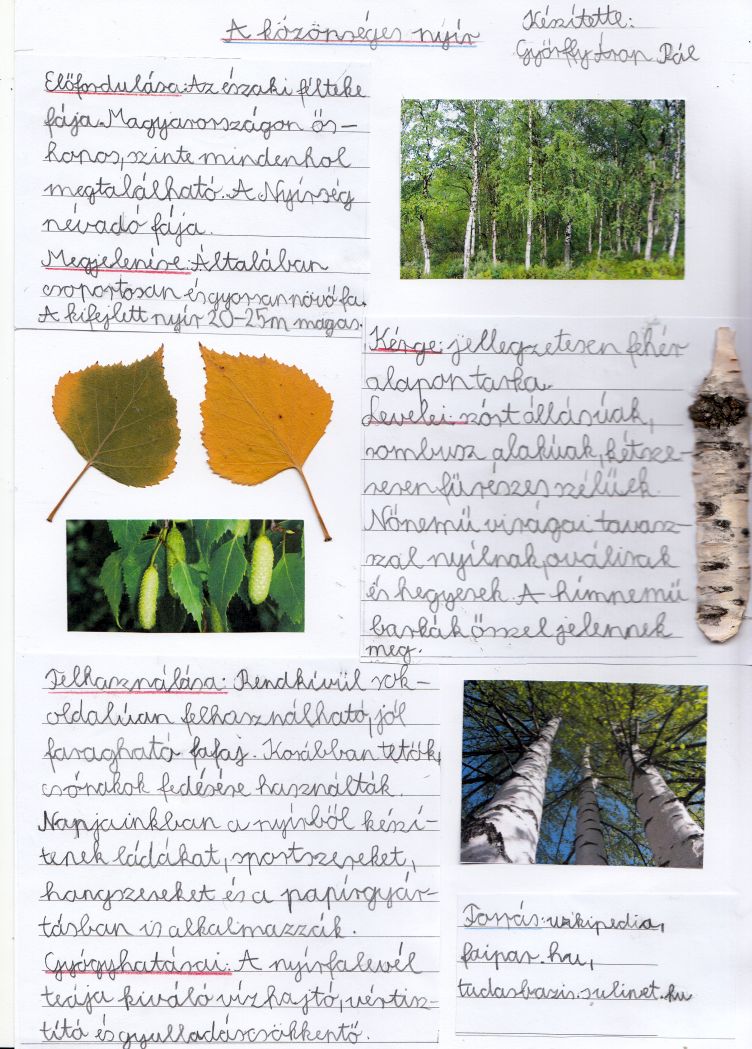 A közönséges nyír
Készítette:
Győrffy Áron Pál
Előfordulása: Az északi félteke
fája. Magyarországon ős-
honos, szinte mindenhol
megtalálható. A Nyírség
névadó fája.
Megjelenése: Általában
csoportosan és gyorsan növő fa.
A kifejlett nyír 20-25m magas.
Kérge: jellegzetesen fehér
alapon tarka.
Levelei: szórt állásúak,
rombusz alakúak, kétsze-
resen fűrészes szélűek.
Nőnemű virágai tavasz-
szal nyílnak, oválisak
és hegyesek. A hímnemű
barkák ősszel jelennek
meg.
Felhasználása: Rendkívül sok-
oldalúan felhasználható, jól
faragható fafaj. Korábban tetők,
csónakok fedésére használták.
Napjainkban a nyírből készí-
tenek ládákat, sportszereket,
hangszereket és a papírgyár-
tásban is alkalmazzák.
Gyógyhatásai: A nyírfalevél
teája kiváló vízhajtó, vértisz-
títő és gyulladáscsökkentő.
Forrás: wikipedia,
faipar.hu,
tudasbazis.sulinet.hu